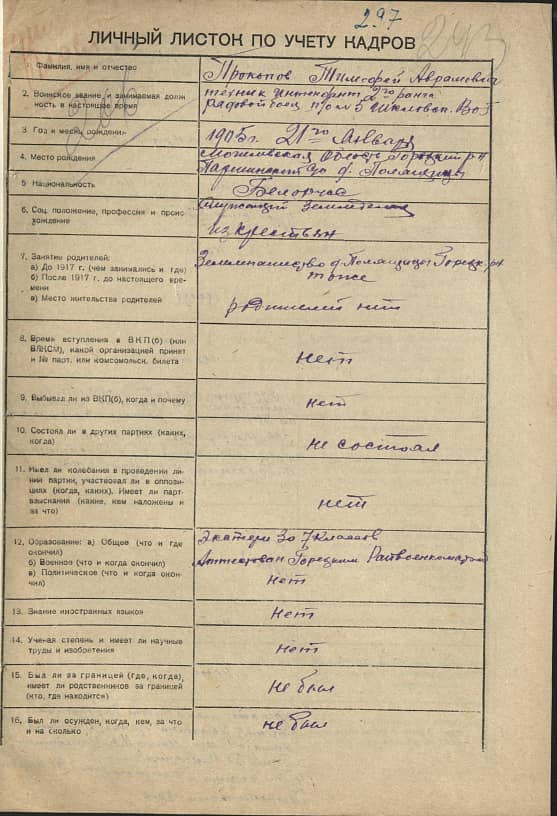 297
293
ЛИЧНЫЙ ЛИСТОК ПО УЧЕТУ КАДРОВ
Фамилия, имя и отчество
Прокопов Тимофей Абрамович
2. Воинское звание и занимаемая долж
ность в настоящее время
техник интендант 2го ранга
рядовой боец
3. Год и месяц рождения
1905г. 21го Января
4. Место рождения
Могилевская область Горецкий р-н
5. Национальность
Белорус
6. Соц. положение, профессия и проис
хождение
служащий
из крестьян
7. Занятие родителей:
а) До 1917 г. (чем занимались и где)
б) После 1917 г. до настоящего вре-
мени
в) Место жительства родителей
тоже
родителей нет
8. Время вступления в ВКП(б) (или
ВЛКСМ), какой организацией принят
и № парт. или комсомольск. билета
нет
9. Выбывал ли из ВКП(б), когда и почему
нет
10. Состоял ли в других партиях (каких,
когда)
не состоял
11. Имел ли колебания в проведении ли-
нии партии, участвовал ли в оппози-
циях (когда, каких). Имеет ли парт-
взыскания (какие, кем наложены и
за что)
нет
12. Образование: а) Общее (что и где
окончил)
б) Военное (что и когда окончил)
в) Политическое (что и когда окон-
чил)
за 7 классов
Аттестован Горецким Райвоенкоматом
нет
13. Знание иностранных языков
нет
14. Ученая степень и имеет ли научные
труды и изобретения
нет
15. Был ли за границей (где, когда),
имеет ли родственников за границей
(кто, где находится)
не был
16. Был ли осужден, когда, кем, за что
и на сколько
не был